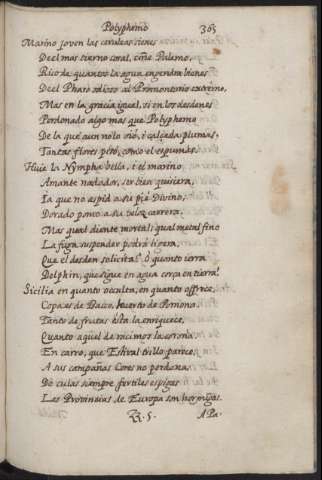 Polyphemo 365
Marino joven las ceruleas sienes
Deel mas tierno coral, ciñe Palemo,
Rico de quantos la agua engendra bienes
Deel Pharo odioso al Promontorio extremo,
Mas en la gracia igual, si en los desdenes
Perdonado algo mas que Polyphemo
De la que aun no lo oió, i calçada plumas,
Tantas flores pisó, como el espumas.
Huie la Nympha bella, i el marino
Amante nadador, ser bien quisiera,
Ia que no espid a su pie Divino,
Dorado pomo a su veloz carrera.
Mas qual diente mortal; igual metal fino
La fuga suspender podrá ligera,
Que el desden solicita? ô quanto ierra
Delphin, que sigue en agua corça en tierra!
Sicilia en quanto occulta, en quanto offrece,
Copa es de Baccо, huerto de Pomona.
Tanto de frutas esta la enriquece,
Quanto aquel de racimos la corona
En carro, que Estival trillo parece,
A sus campañas Ceres no perdona,
De cuias siempre fertiles espigas
Las Provincias de Europa son hormigas.
5. A Pa-